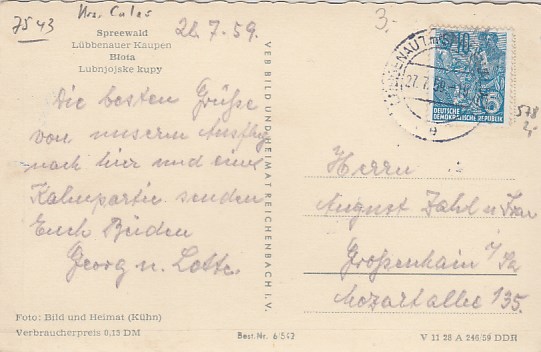 7543
3.-
28.7.59.
Spreewald
Lübbenauer Kaupen
Błota
Lubnjojske kupy
Die besten Grüße
von unserm Ausflug
nach hier und eine
Kahnpartie senden
Euch Beiden
Georg u. Lotte.
Foto: Bild und Heimat (Kühn)
Verbraucherpreis 0,13 DM
VEB BILD UND HEIMAT REICHENBACH I. V.
Best.Nr. 6/542
27.7.59
10
5
DEUTSCHE
DEMOKRATISCHE REPUBLIK
e
578
2,-
Herrn
August Zahl u Frau
Großenhain i/Sa
Mozartallee 135.
V 11 28 A 246/59 DDR